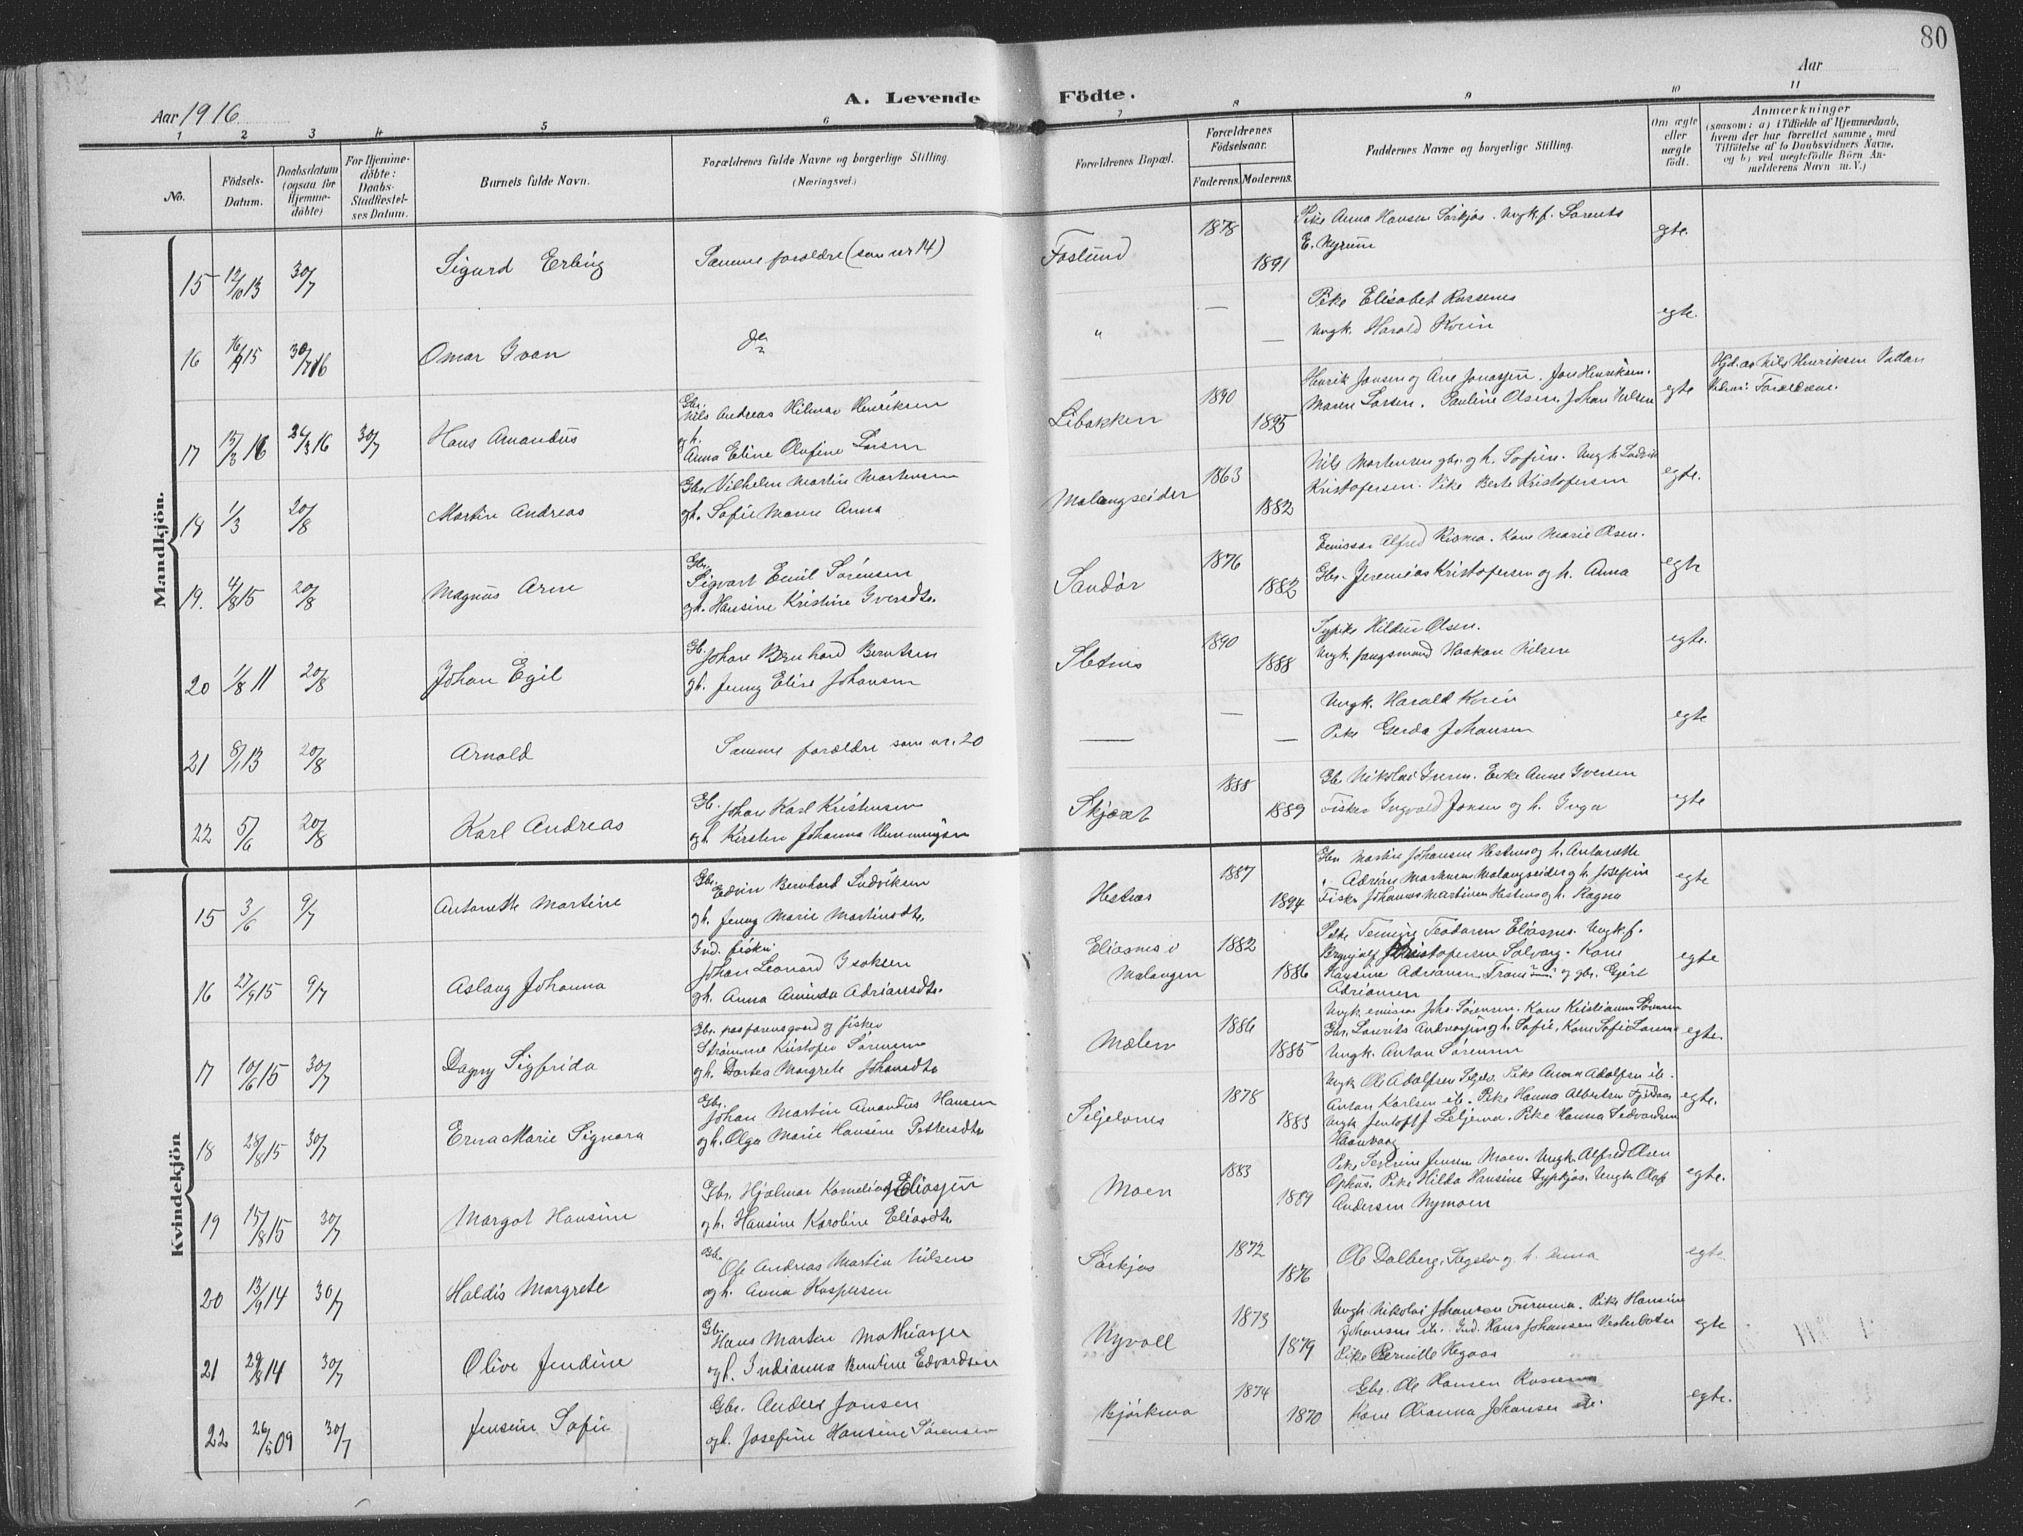 80
Aar 1916
A. Levende Födte.
Aar
1 2 3 4 5 6 7 8 9 10 11
No.
Födsels-Datum.
Daabsdatum (ogsaa for Hjemme-döbte)
For Hjemme-döbte: Daabs-Stadfæstel-ses Datum.
Barnets fulde Navn.
Forældrenes fulde Navne og borgerlige Stilling.
(Næringsvei.)
Forældrenes Bopæl.
Forældrenes Födselsaar.
Faderens. Moderens.
Faddernes Navne og borgerlige Stilling.
Om ægte eller uægte födt.
Anmærkninger
(saasom: a) i Tilfælde af Hjemmedaab, hvem der har forrettet samme, med Tilföielse af to Daabsvidners Navne, og b) ved uægtefödte Börn An-melderens Navn m. V.)
Mandkjön.
15 12/10 13 30/7 Sigurd Erling Samme forældre (som nr 14) Foslund 1878 1891 Pike Anna Hansen Sörkjos. Ungk. f. Lorents
E. Nyrum egte.
16 15 30/7 16 Omar Ivan do " — — Pike Elisabet
Ungk. Harald Kvein egte.
17 15/3 16 26/3 16 30/7 Hans Amandus Gbr. Nils Andreas Hilmar Henriksen
og h. Anna Eline Olufine Larsen Libakken 1890 1895 Henrik Jonsen og Ane Jonassen. Jon Henriksen.
Maren Larsen. Pauline Olsen. Johan Nilsen egte
Hjd. av Nils Henriksen
Forældrene.
18 1/3 20/8 Martin Andreas Gbr. Vilhelm Martin Mortensen
og h. Sofie Maren Anna Malangseidet 1863 1882 Nils Mortensen gbr. og h. Sofie. Ungk. Ludvik
Kristofersen. Pike Berte Kristofersen egte.
19. 4/8 15 20/8 Magnus Arne Gbr. Sigvart Emil Sörensen
og h. Hansine Kristine Iversdtr. Sandör 1876 1882 Emissær Alfred Rismo. Kone Marie Olsen.
Gbr. Jeremias Kristofersen og h. Anna egte
20 1/8 11 20/8 Johan Egil Gb. Johan Bernhard Berntsen
og h. Jenny Elise Johansen Sletnes 1890 1888 Hildur Olsen.
Ungk. fangstmand Haakon Nilsen egte.
21 8/1 13 20/8 Arnold Samme forældre som nr. 20 — — — Ungk. Harald Kvein
Pike Gerda Johansen egte
22 5/6 20/8 Karl Andreas Gb. Johan Karl Kristensen
og h. Kirsten Johanna Henningsen Skjæret 1888 1889 Gb. Nikolai Iversen. Enke Anne Iversen
Fisker Ingvald Jonsen og h. Inga egte
Kvindekjön
15 3/6 9/7 Antonette Martine Gbr. Edvin Bernhard Ludviksen
og h. Jenny Marie Martinsdtr. Hestnes 1887 1894 Gbr. Martin Johansen Hestnes og h. Antonette
" Adrian Markusen Malangseidet og h. Josefine
Fisk. Johannes Martinsen Hestnes og h. Ragna egte
16 27/9 15 9/7 Aslaug Johanna Ind. fisker
Johan Leonard Isaksen
og h. Anna Aminda Adriansdtr. Eliasnes i
Malangen 1882 1886 Pike Teodoren Eliasnes. Ungk. f.
Brynjulf Kristofersen Solvang. Kone
Hansine Adriansen Troms og gbr. Gjert
Adriansen egte
17 10/6 15 30/7 Dagny Sigfrida Gbr. og fisker
Strömme Kristofer Sörensen
og h. Dortea Margrete Johansdtr. Mælen 1886 1885 Ungk. emissær Johs. Sörensen. Kone Kristianna Sörensen
Gbr. Lorents Andreassen og h. Sofie. Kone Sofie Larsen
Ungk. Anton Sörensen egte.
18 28/8 15 30/7 Erna Marie Signora Gbr.
Johan Martin Amandus Hansen
og h. Olga Marie Hansine Pettersdtr. Seljelvnes 1878 1883 Ungk. Ole Adolfsen Seljelv. Pike Anna Adolfsen ib.
Anton Karlsen ib. Pike Hanna Albertsen
Ungk. Jentoft J. Pike Hanna Edvardsen egte.
19 15/8 15 30/7 Margot Hansine Gbr. Hjalmar Kornelius Eliassen
og h. Hansine Karoline Eliasdtr. Moen 1883 1889 Pike Severine Jensen Moen. Ungk. Alfred Olsen
Ophus. Pike Hilda Hansine Dypkjos. Ungk. Olaf
Andersen Nymoen egte.
20 13/9 14 30/7 Haldis Margrete Gbr. Ole Andreas Martin Nilsen
og h. Anna Kaspersen Sörkjos 1872 1876 Ole Dalberg, og h. Anna egte
21 29/8 14 30/7 Olive Jendine Gbr. Hans Martin Mathiassen
og h. Indianna Berntine Edvardsen Nyvoll 1873 1879 Ungk. Nikolai Johansen Furumo. Pike Hansine
Johansen ib. Ind. Hans Johansen
Pike Pernille egte
22 26/5 09 30/7 Jensine Sofie Gbr. Anders Jonsen
og h. Josefine Hansine Sörensen Björkmo 1874 1870 Gbr. Ole Hansen
Kone Olianna Johansen egte.